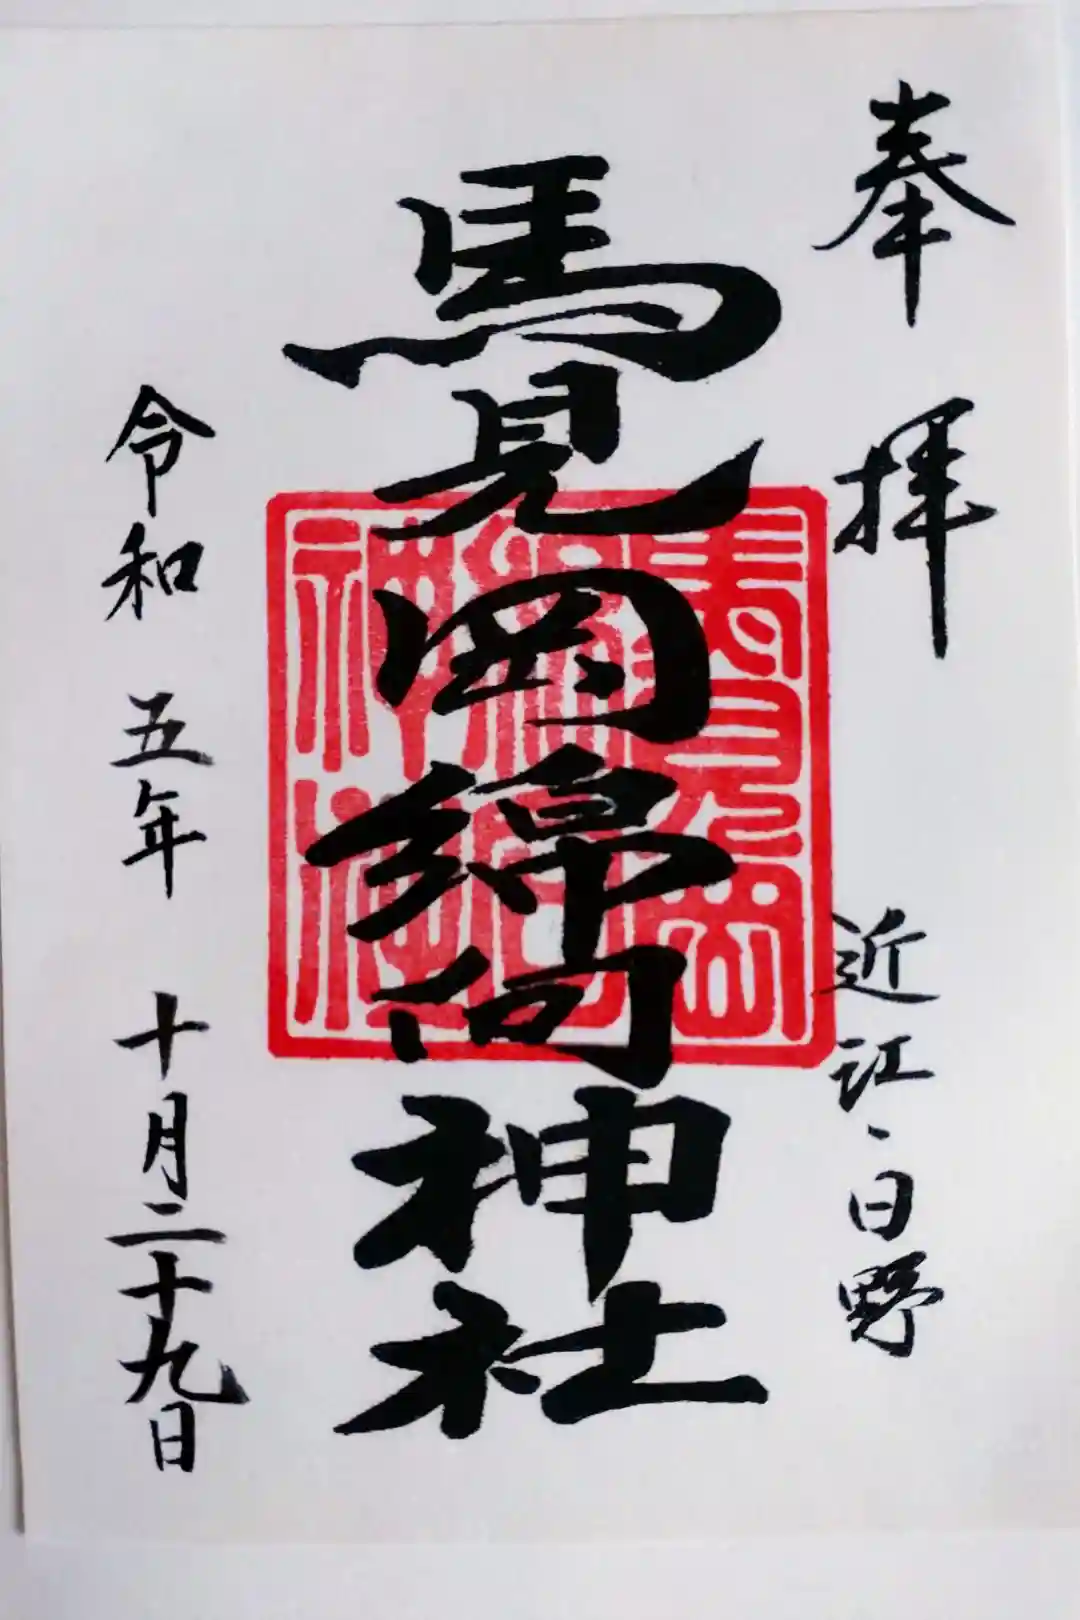 奉拝
近江・日野
馬見岡綿向神社
令和五年十月二十九日
馬見岡
綿向
神社